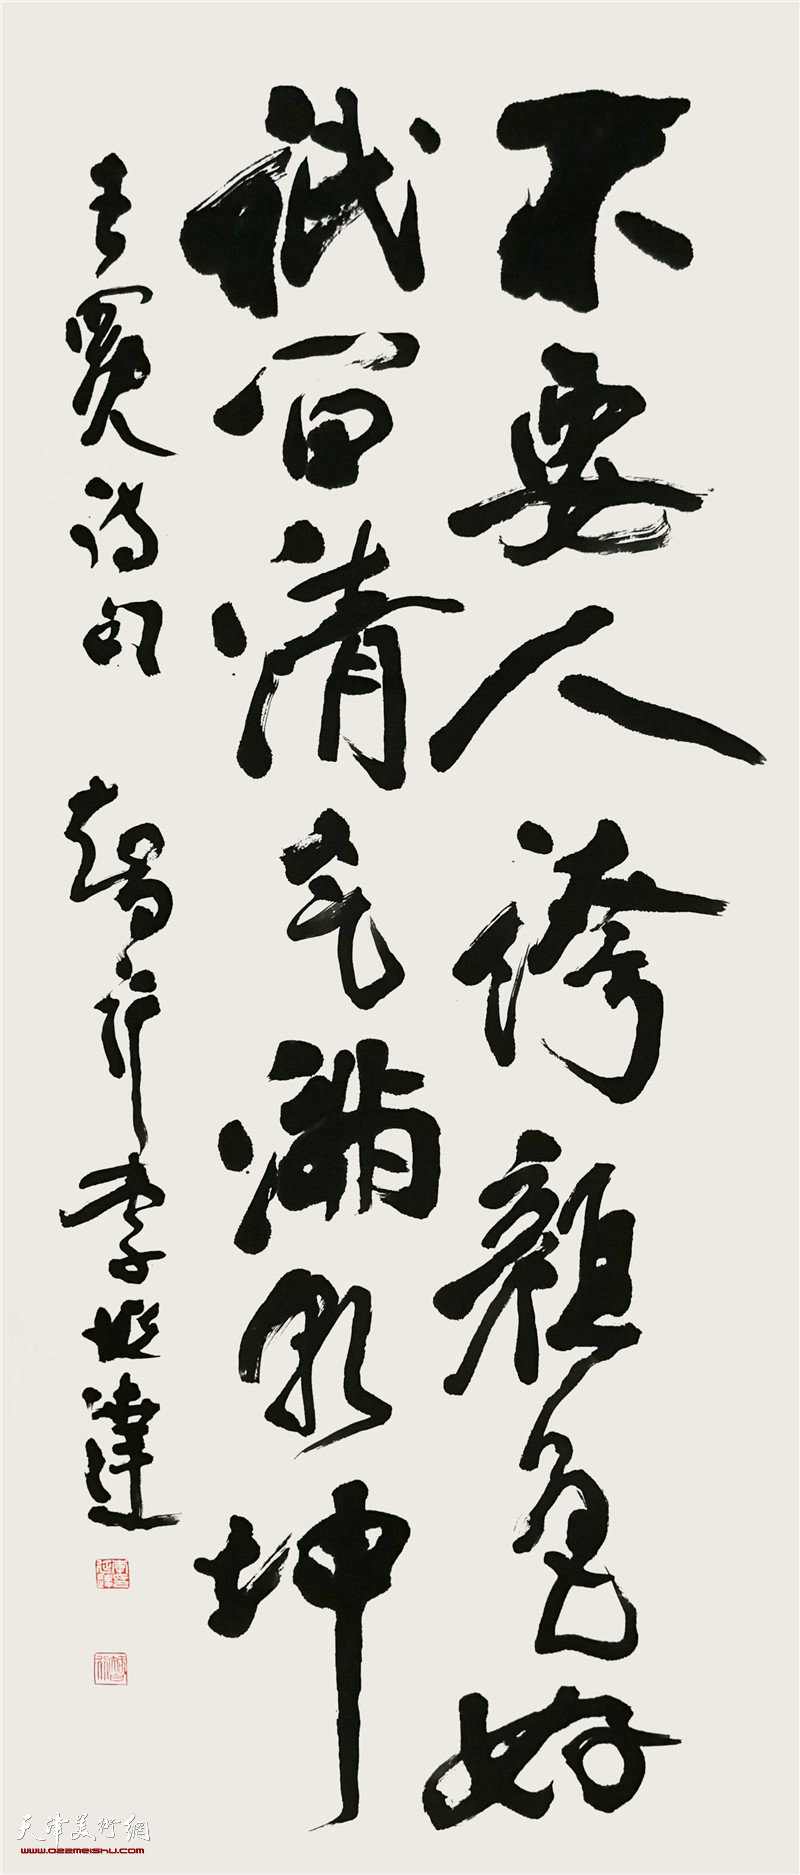 不要人誇顏色好
祇留清氣滿乾坤
王冕詩句 李
天津美術網
www.022meishu.com